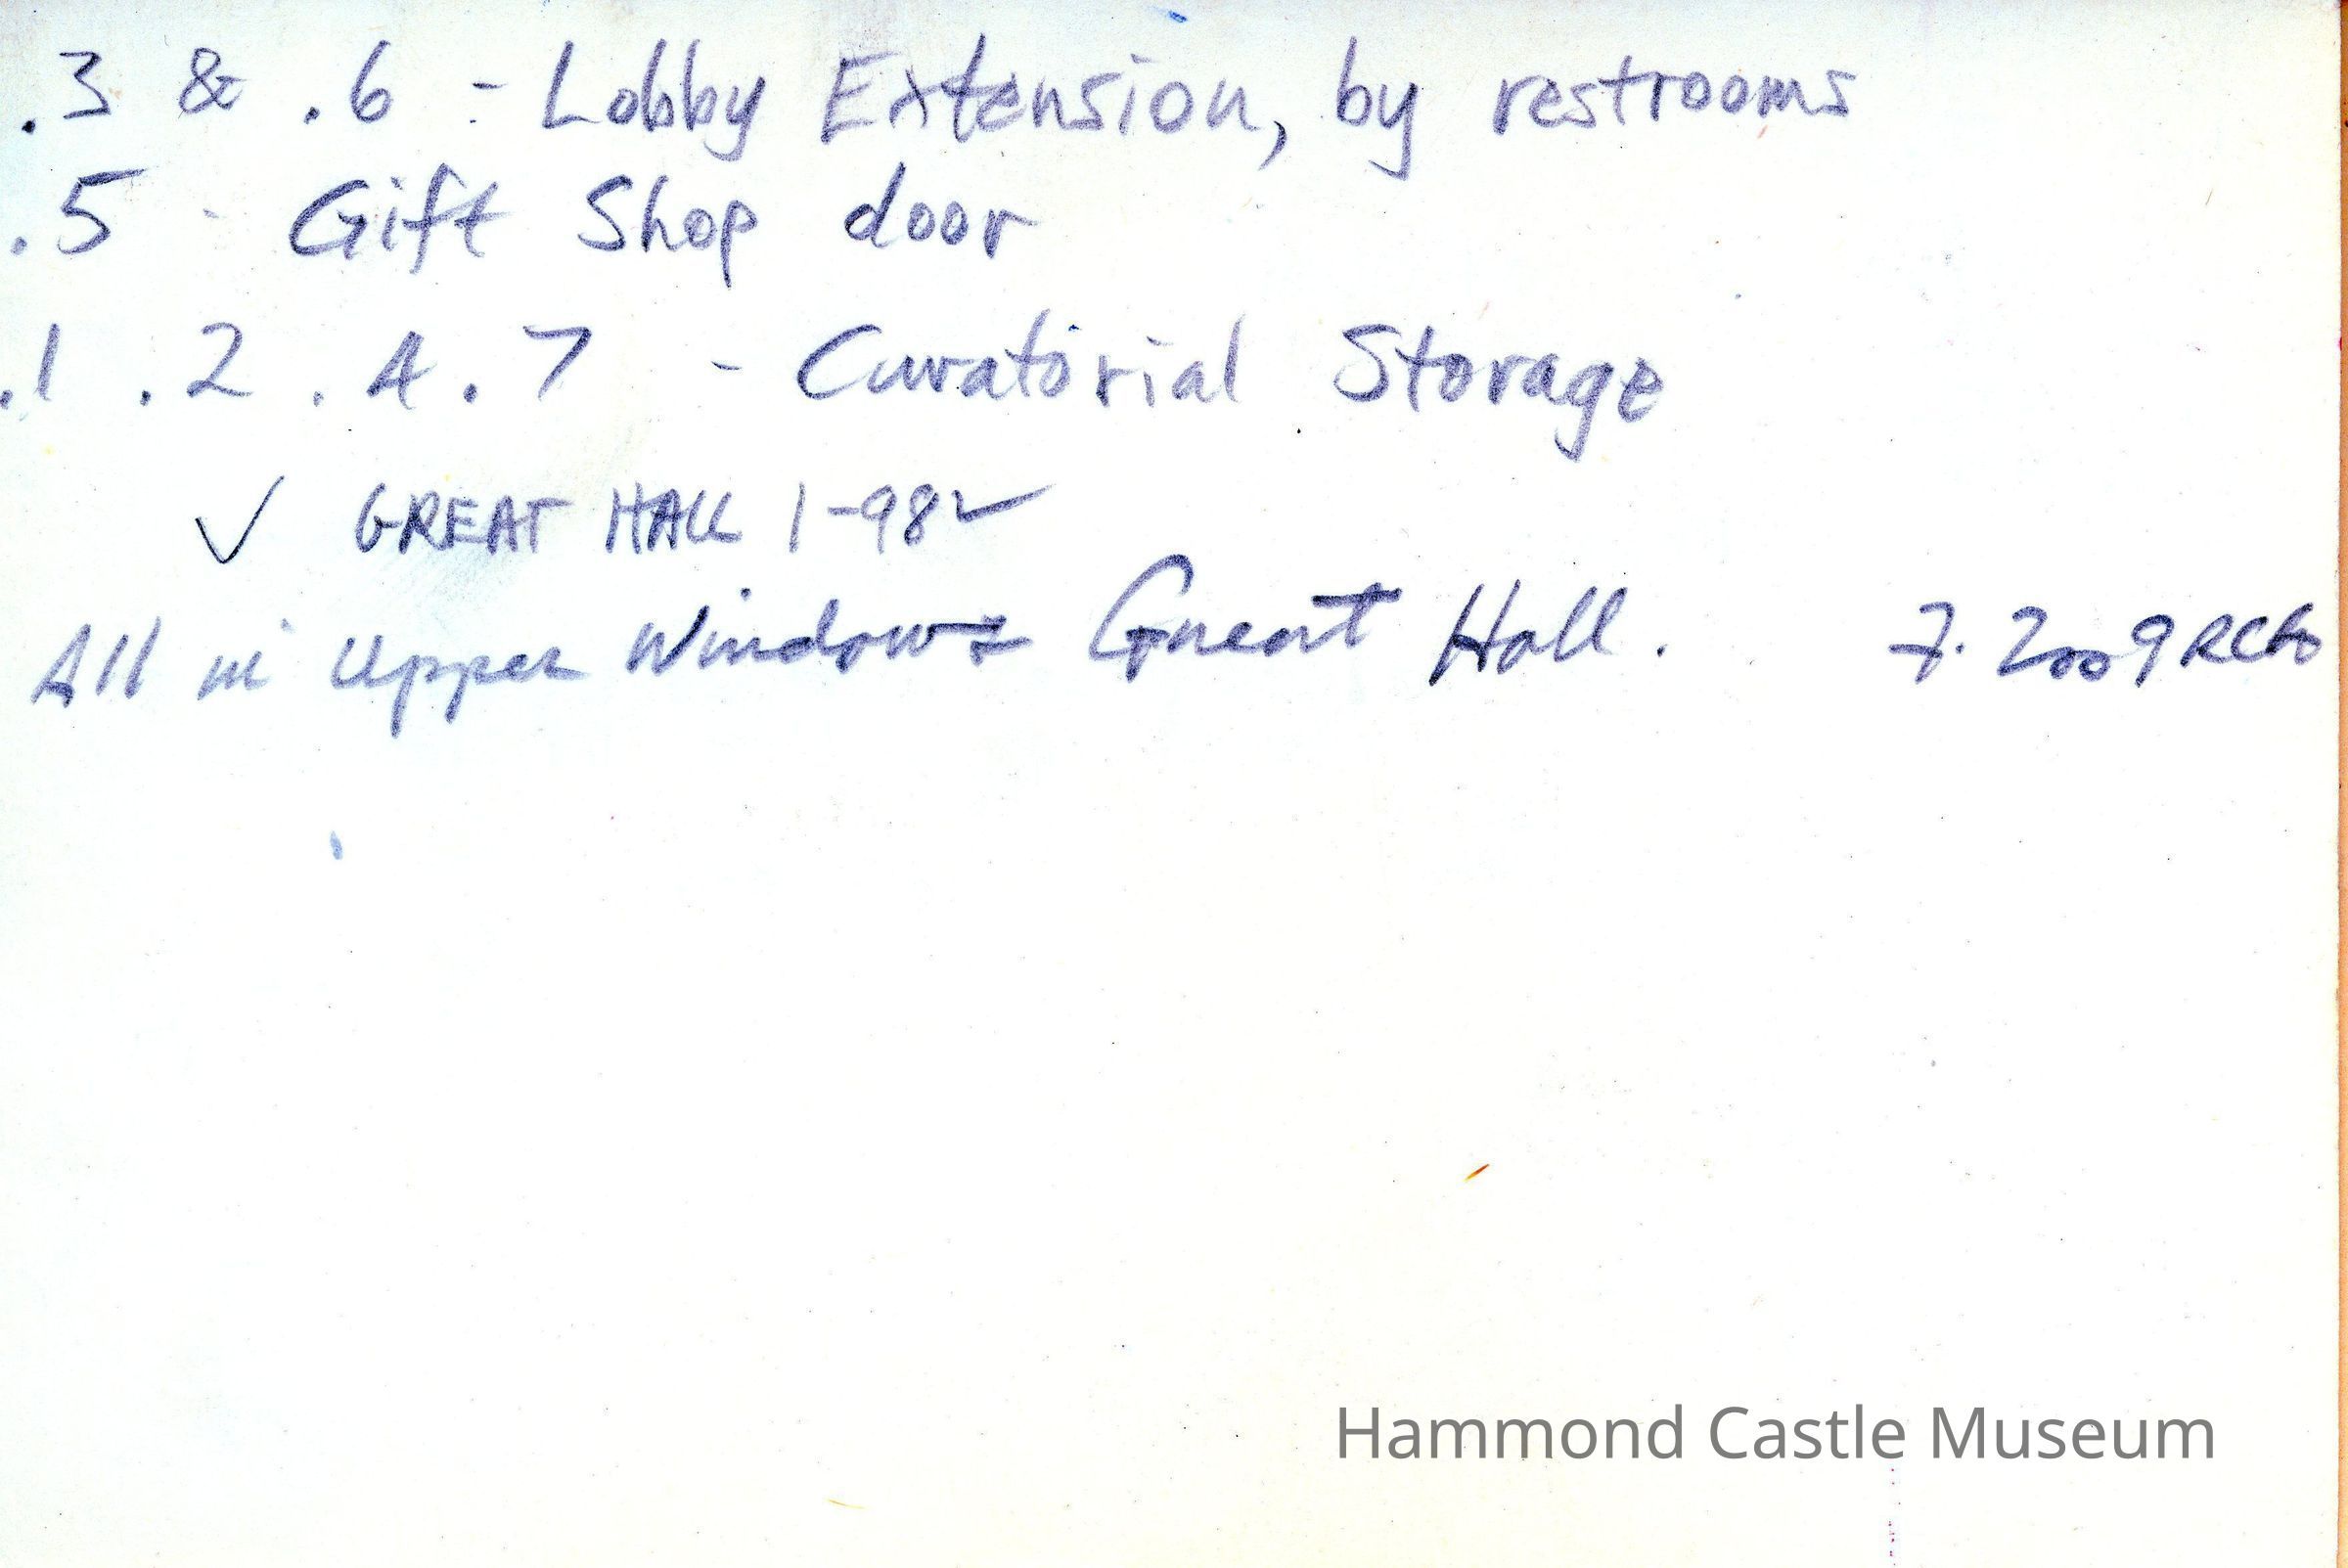 .3 & .6 - Lobby Extension, by restrooms
.5 - Gift Shop door
.1 .2 .4 .7 - Curatorial Storage
✓ GREAT HALL 1-98 ✓
All in Upper Windows Great Hall. 7.2009
Hammond Castle Museum